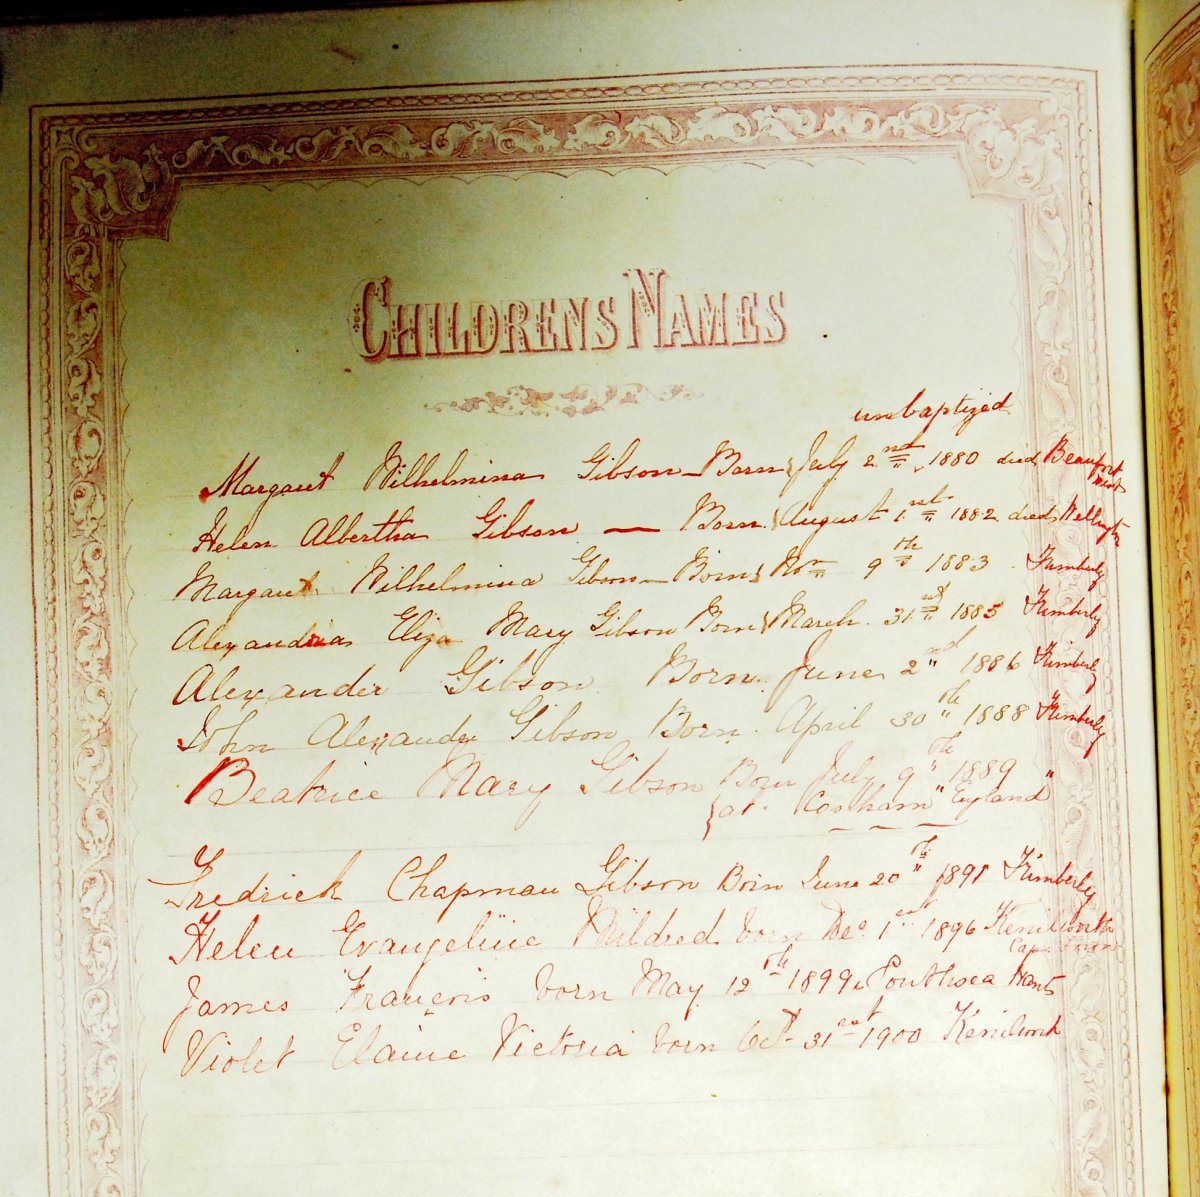 CHILDRENS NAMES
unbaptized
Margaret Wilhelmina Gibson - Born July 2nd 1880 died Beaufort West
Helen Albertha Gibson — Born August 1st 1882 died Wellington
Margaret Wilhelmina Gibson - Born Nov 9th 1883 Kimberly
Alexandria Eliza Mary Gibson Born March 31st 1885 Kimberly
Alexander Gibson Born June 2nd 1886 Kimberly
John Alexander Gibson Born April 30th 1888 Kimberly
Beatrice Mary Gibson Born July 9th 1889
at Cosham England
Fredrick Chapman Gibson Born June 20th 1891 Kimberly
Helen Evangeline Mildred born Dec 1st 1896 Kenilworth
Cape Town
James François born May 12th 1899 Southsea Hants
Violet Elaine Victoria born Oct 31st 1900 Kenilworth